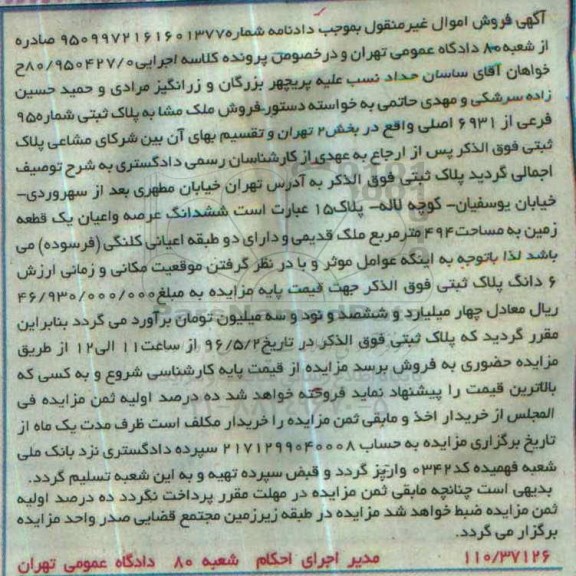 آگهی فروش اموال غیرمنقول بموجب دادنامه شماره۹۵۰۹۹۷۲۱۶۱۶۰۱۳۷۷ صادره
از شعبه ۸۰ دادگاه عمومی تهران و درخصوص پرونده کلاسه اجرایی۸۰/۹۵۰۴۲۷/۰ج
خواهان آقای ساسان حداد نسب علیه پریچهر بزرگان و زرانگیز مرادی و حمید حسین
زاده سرشکی و مهدی حاتمی به خواسته دستور فروش ملک مشا به پلاک ثبتی شماره۹۵
فرعی از ۶۹۳۱ اصلی واقع در بخش۲ تهران و تقسیم بهای آن بین شرکای مشاعی پلاک
ثبتی فوق الذکر پس از ارجاع به عهدی از کارشناسان رسمی دادگستری به شرح توصیف
اجمالی گردید پلاک ثبتی فوق الذکر به آدرس تهران خیابان مطهری بعد از سهروردی-
خیابان یوسفیان- کوچه لاله- پلاک۱۵ عبارت است ششدانگ عرصه واعیان یک قطعه
زمین به مساحت۴۹۴ مترمربع ملک قدیمی و دارای دو طبقه اعیانی کلنگی (فرسوده) می
باشد لذا باتوجه به اینگه عوامل موثر و با در نظر گرفتن موقعیت مکانی و زمانی ارزش
۶ دانگ پلاک ثبتی فوق الذکر جهت قیمت پایه مزایده به مبلغ۴۶/۹۳۰/۰۰۰/۰۰۰
ریال معادل چهار میلیارد و ششصد و نود و سه میلیون تومان برآورد می گردد بنابراین
مقرر گردید که پلاک ثبتی فوق الذکر در تاریخ۹۶/۵/۲ از ساعت۱۱ الی۱۲ از طریق
مزایده حضوری به فروش برسد مزایده از قیمت پایه کارشناسی شروع و به کسی که
بالاترین قیمت را پیشنهاد نماید فروخته خواهد شد ده درصد اولیه ثمن مزایده فی
المجلس از خریدار اخذ و مابقی ثمن مزایده را خریدار مکلف است ظرف مدت یک ماه از
تاریخ برگزاری مزایده به حساب ۲۱۷۱۲۹۹۰۴۰۰۰۸ سپرده دادگستری نزد بانک ملی
شعبه فهمیده کد۰۳۴۲ واریز گردد و قبض سپرده تهیه و به این شعبه تسلیم گردد.
بدیهی است چنانچه مابقی ثمن مزایده در مهلت مقرر پرداخت نگردد ده درصد اولیه
ثمن مزایده ضبط خواهد شد مزایده در طبقه زیرزمین مجتمع قضایی صدر واحد مزایده
برگزار می گردد.
۱۱۰/۳۷۱۲۶ مدیر اجرای احکام شعبه ۸۰ دادگاه عمومی تهران